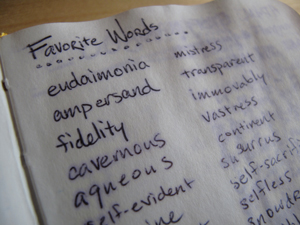 Favorite Words
eudaimonia
ampersand
fidelity
cavernous
aqueous
self-evident
mistress
transparent
immovably
vastness
continent
susurrus
selfless